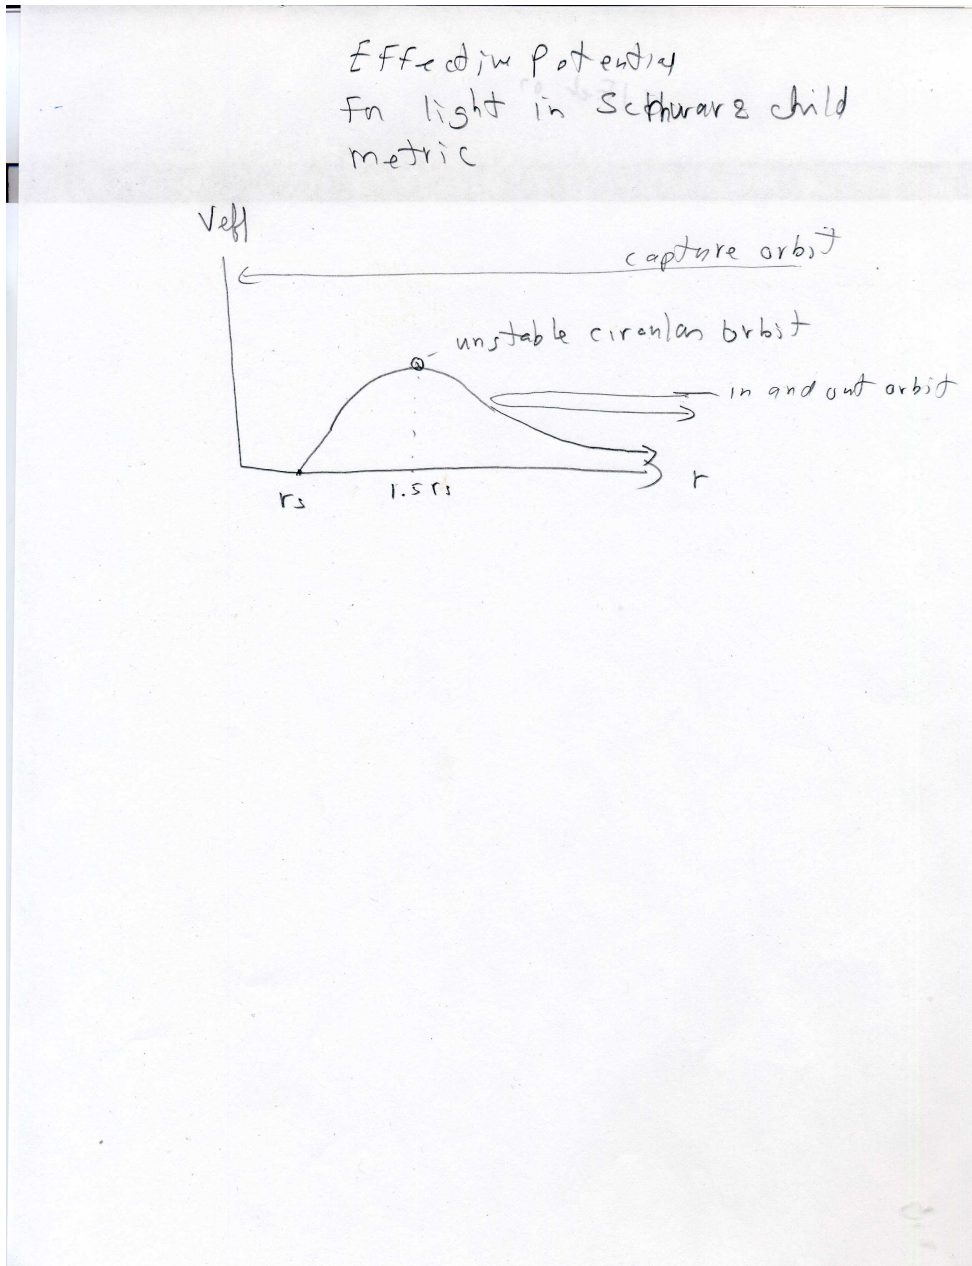 Effective Potential
For light in Schwarzschild
metric
Veff
capture orbit
unstable circular orbit
in and out orbit
rs
1.5 rs
r